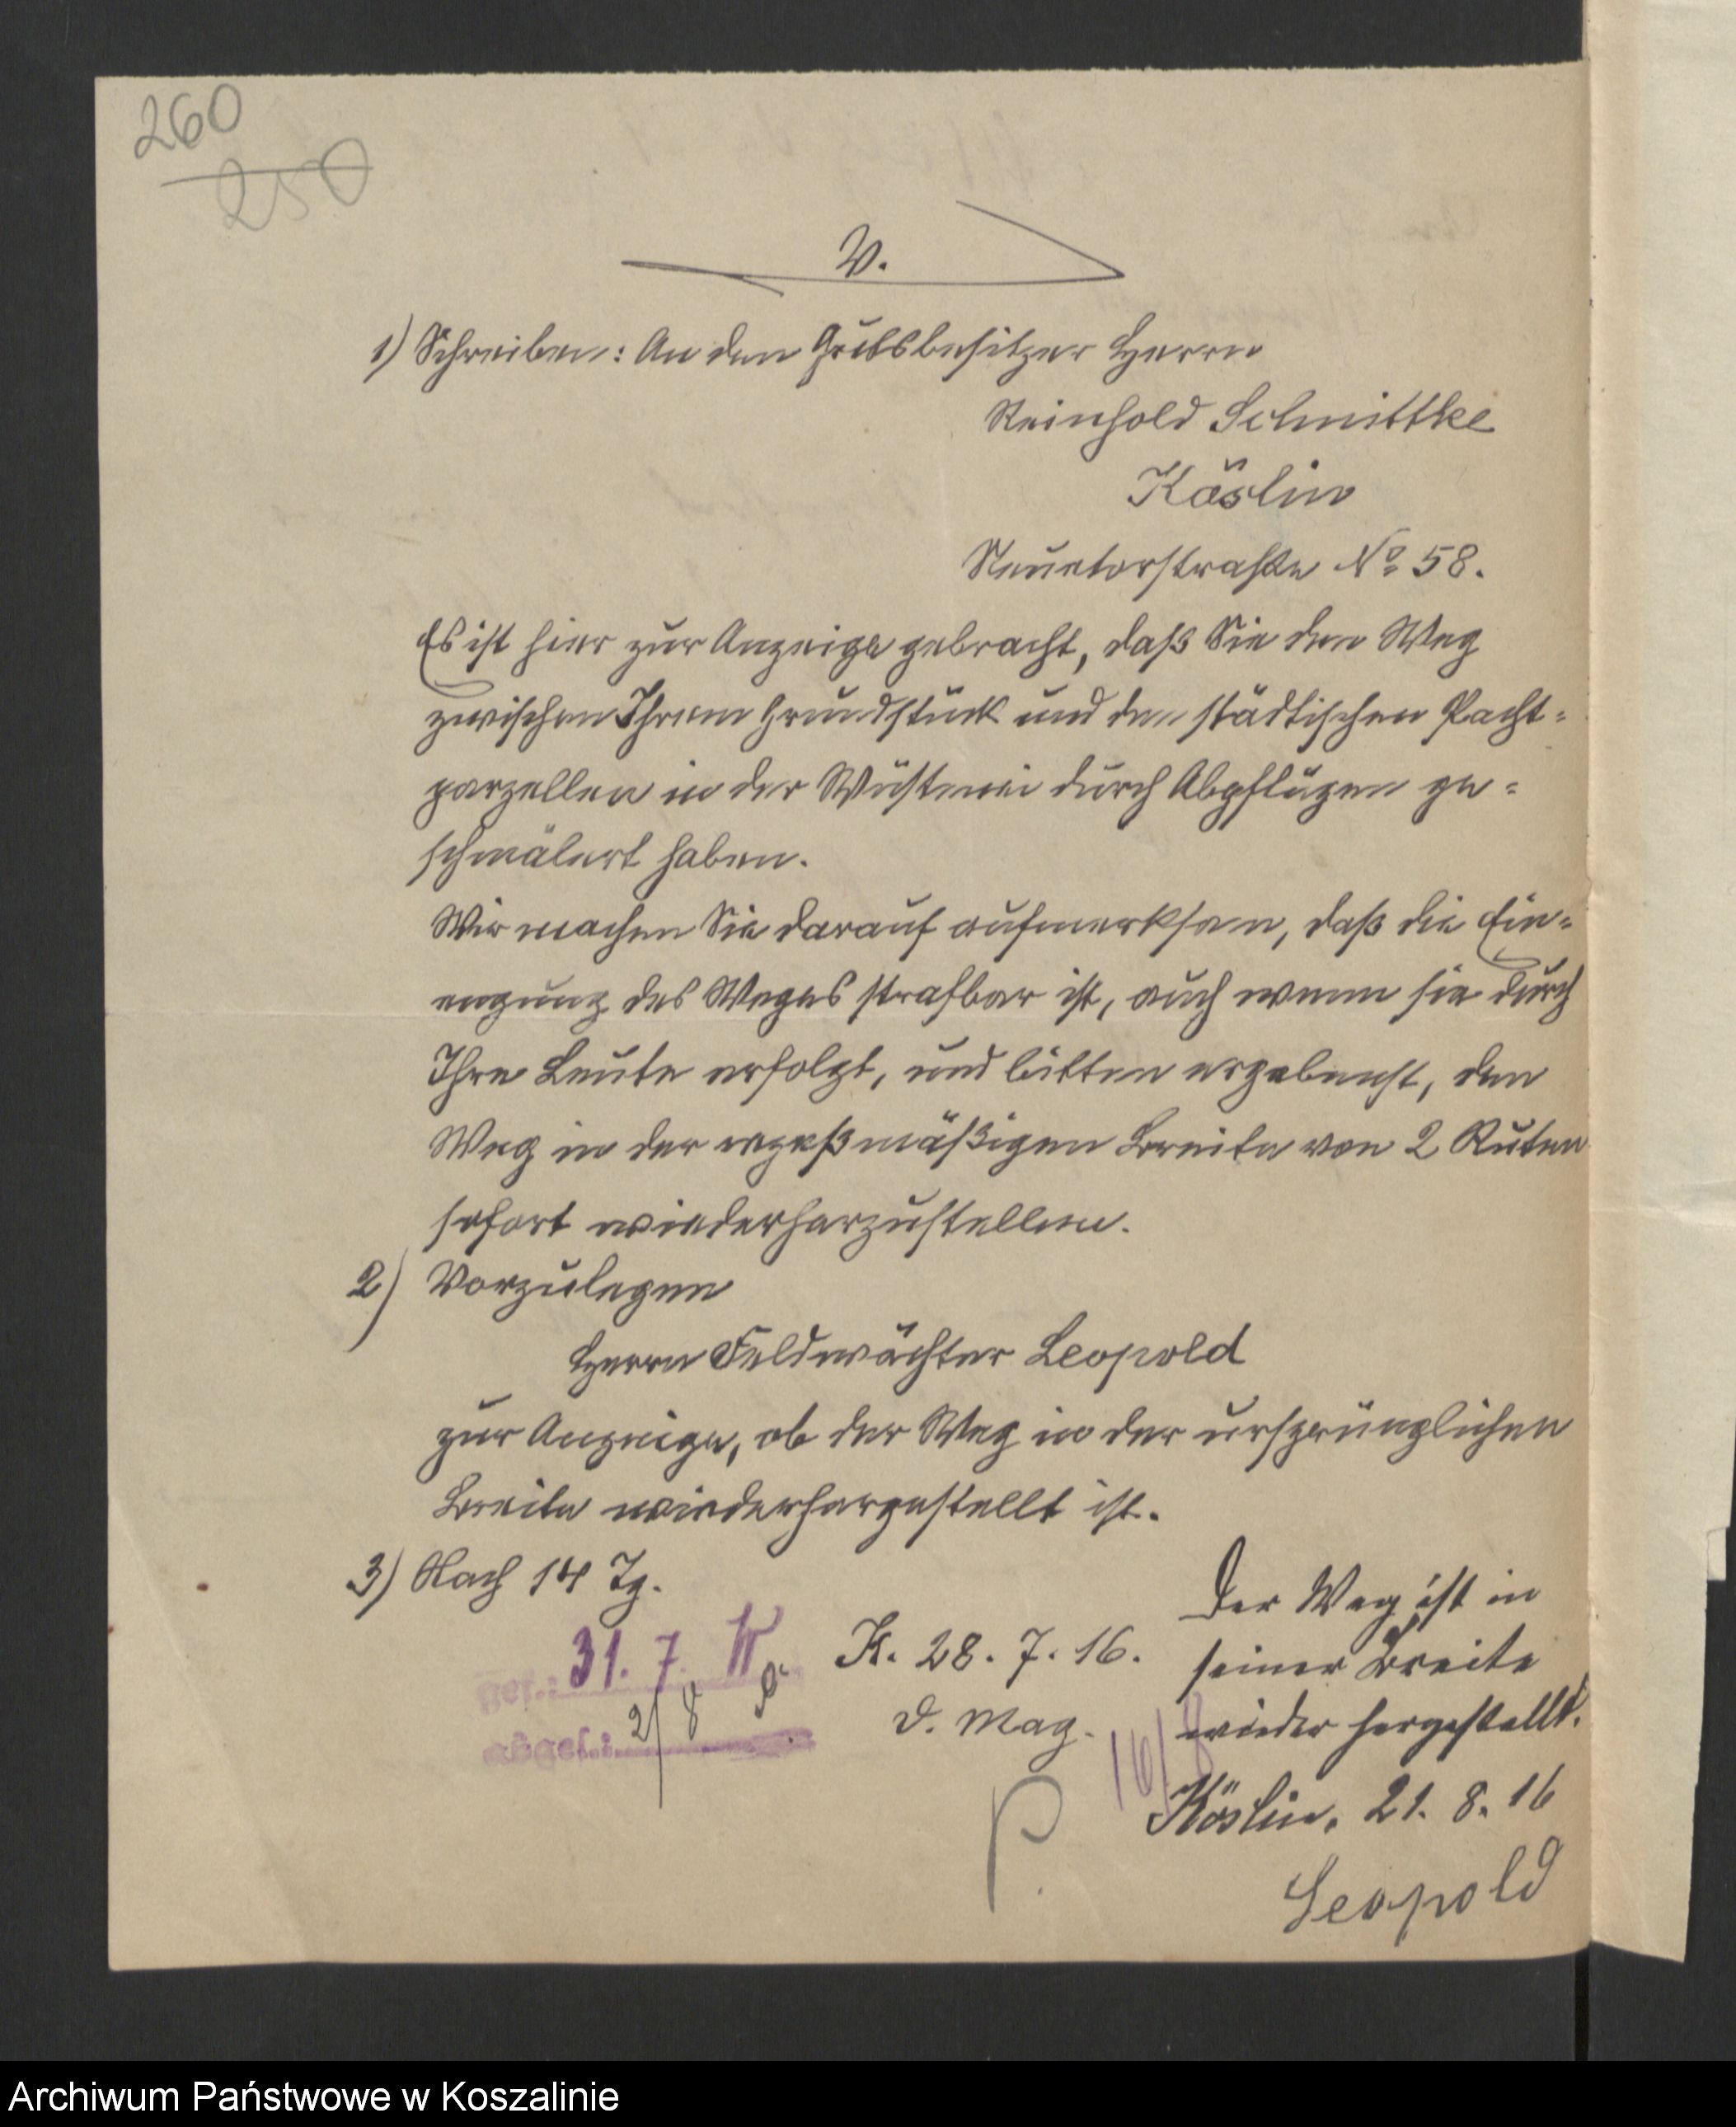 260
250
V.
1) Schreiben: An den Gutsbesitzer Herrn
Reinhold Schmittke
Köslin
Neuetorstraße No 58.
Es ist hier zur Anzeige gebracht, daß Sie den Weg
zwischen Ihrem Grundstück und den städtischen Pacht-
parzellen in der Wüstenei durch Abpflügen ge-
schmälert haben.
Wir machen Sie darauf aufmerksam, daß die Ein-
engung des Weges strafbar ist, auch wenn sie durch
Ihre Leute erfolgt, und bitten ergebenst, den
Weg in der rezeßmäßigen Breite von 2 Ruten
sofort wiederherzustellen.
2) Vorzulegen
Herrn Feldwächter Leopold
zur Anzeige, ob der Weg in der ursprünglichen
Breite wiederhergestellt ist.
3) Nach 14 Tg.
Der Weg ist in
seiner Breite
wieder hergestellt.
Köslin, 21. 8. 16
Leopold
K. 28. 7. 16.
D. Mag.
P.
gef.: 31. 7.
abges.: 2/8
16/8
Archiwum Państwowe w Koszalinie